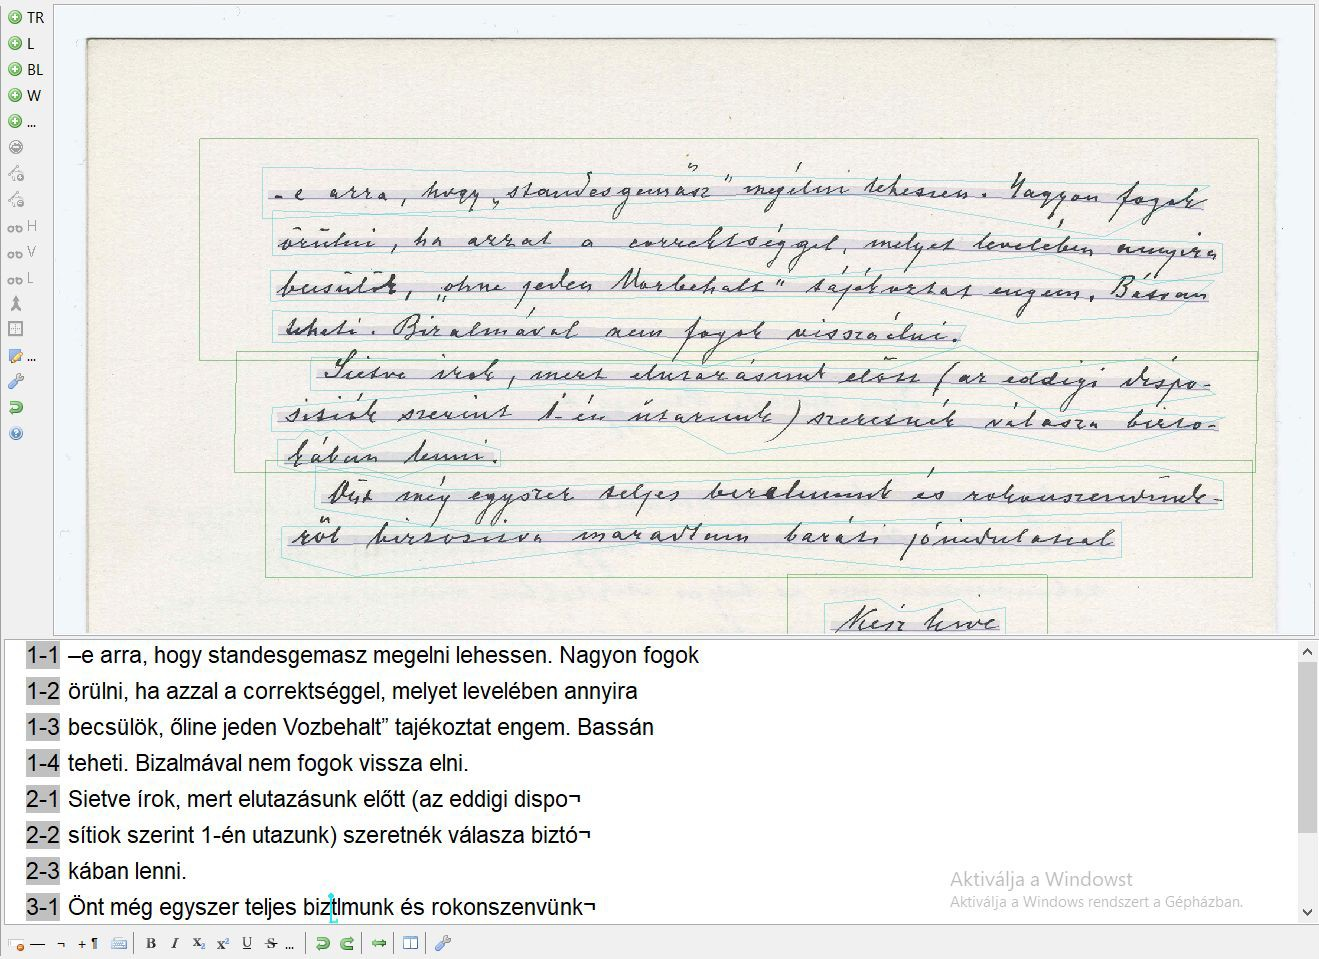 TR
L
BL
W
...
H
V
L
...
-e arra, hogy „standesgemäsz" megélni lehessen. Nagyon fogok
örülni, ha azzal a correktséggel, melyet levelében annyira
becsülök, „ohne jeden Vorbehalt" tájékoztat engem. Bássan
teheti. Bizalmával nem fogok visszaélni.
Sietve irok, mert elutazásunk előtt (az eddigi dispo-
sitiók szerint 1-én utazunk) szeretnék válasza birto-
kában lenni.
Önt még egyszer teljes bizalmunk és rokonszenvünk-
ről biztositva maradtam baráti jóindulattal
Kész hive
1-1 –e arra, hogy standesgemasz megelni lehessen. Nagyon fogok
1-2 örülni, ha azzal a correktséggel, melyet levelében annyira
1-3 becsülök, őline jeden Vozbehalt” tajékoztat engem. Bassán
1-4 teheti. Bizalmával nem fogok vissza elni.
2-1 Sietve írok, mert elutazásunk előtt (az eddigi dispo¬
2-2 sítiok szerint 1-én utazunk) szeretnék válasza biztó¬
2-3 kában lenni.
3-1 Önt még egyszer teljes biztlmunk és rokonszenvünk¬
Aktiválja a Windowst
Aktiválja a Windows rendszert a Gépházban.
— ¬ + ¶ B I X₂ X² U S ...